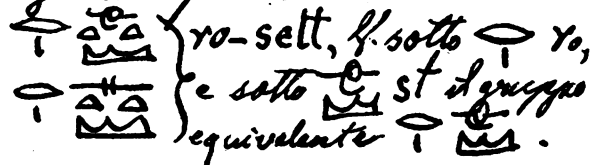 ro-sett, V. sotto ro,
e sotto st il gruppo
equivalente .